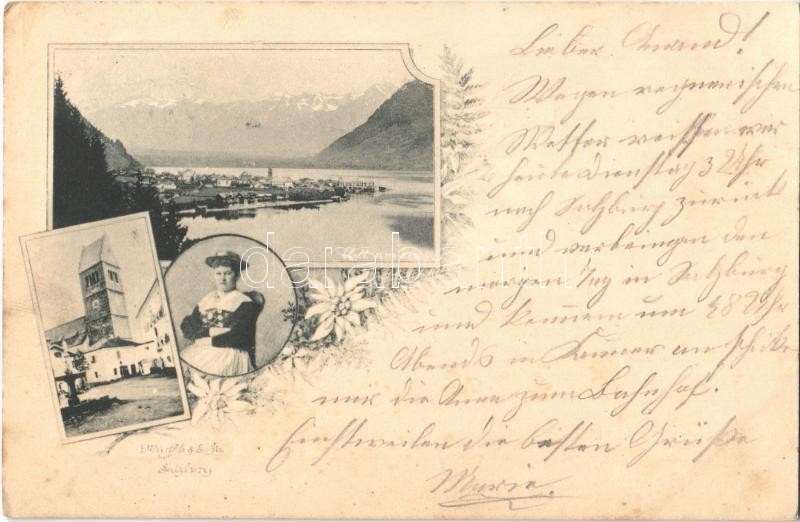 Lieber Anand!
Wegen regnerischen
Wetter reisten wir
heute Dienstag 3 Uhr
nach Salzburg zurück
und verbringen den
morgen Tag in Salzburg
und kommen um 1/28 Uhr
Abends in an schike
mir die Anna zum Bahnhof.
Einstweilen die besten Grüße
Marie.
Würthle & S.
Salzburg
darabanth